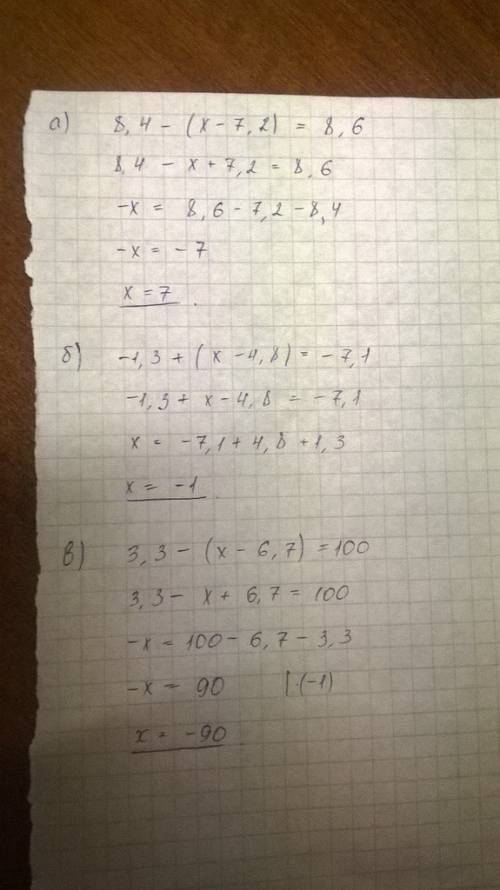 а) 8,4 - (x - 7,2) = 8,6
8,4 - x + 7,2 = 8,6
-x = 8,6 - 7,2 - 8,4
-x = -7
x = 7.
б) -1,3 + (x - 4,8) = -7,1
-1,3 + x - 4,8 = -7,1
x = -7,1 + 4,8 + 1,3
x = -1.
в) 3,3 - (x - 6,7) = 100
3,3 - x + 6,7 = 100
-x = 100 - 6,7 - 3,3
-x = 90 |·(-1)
x = -90.